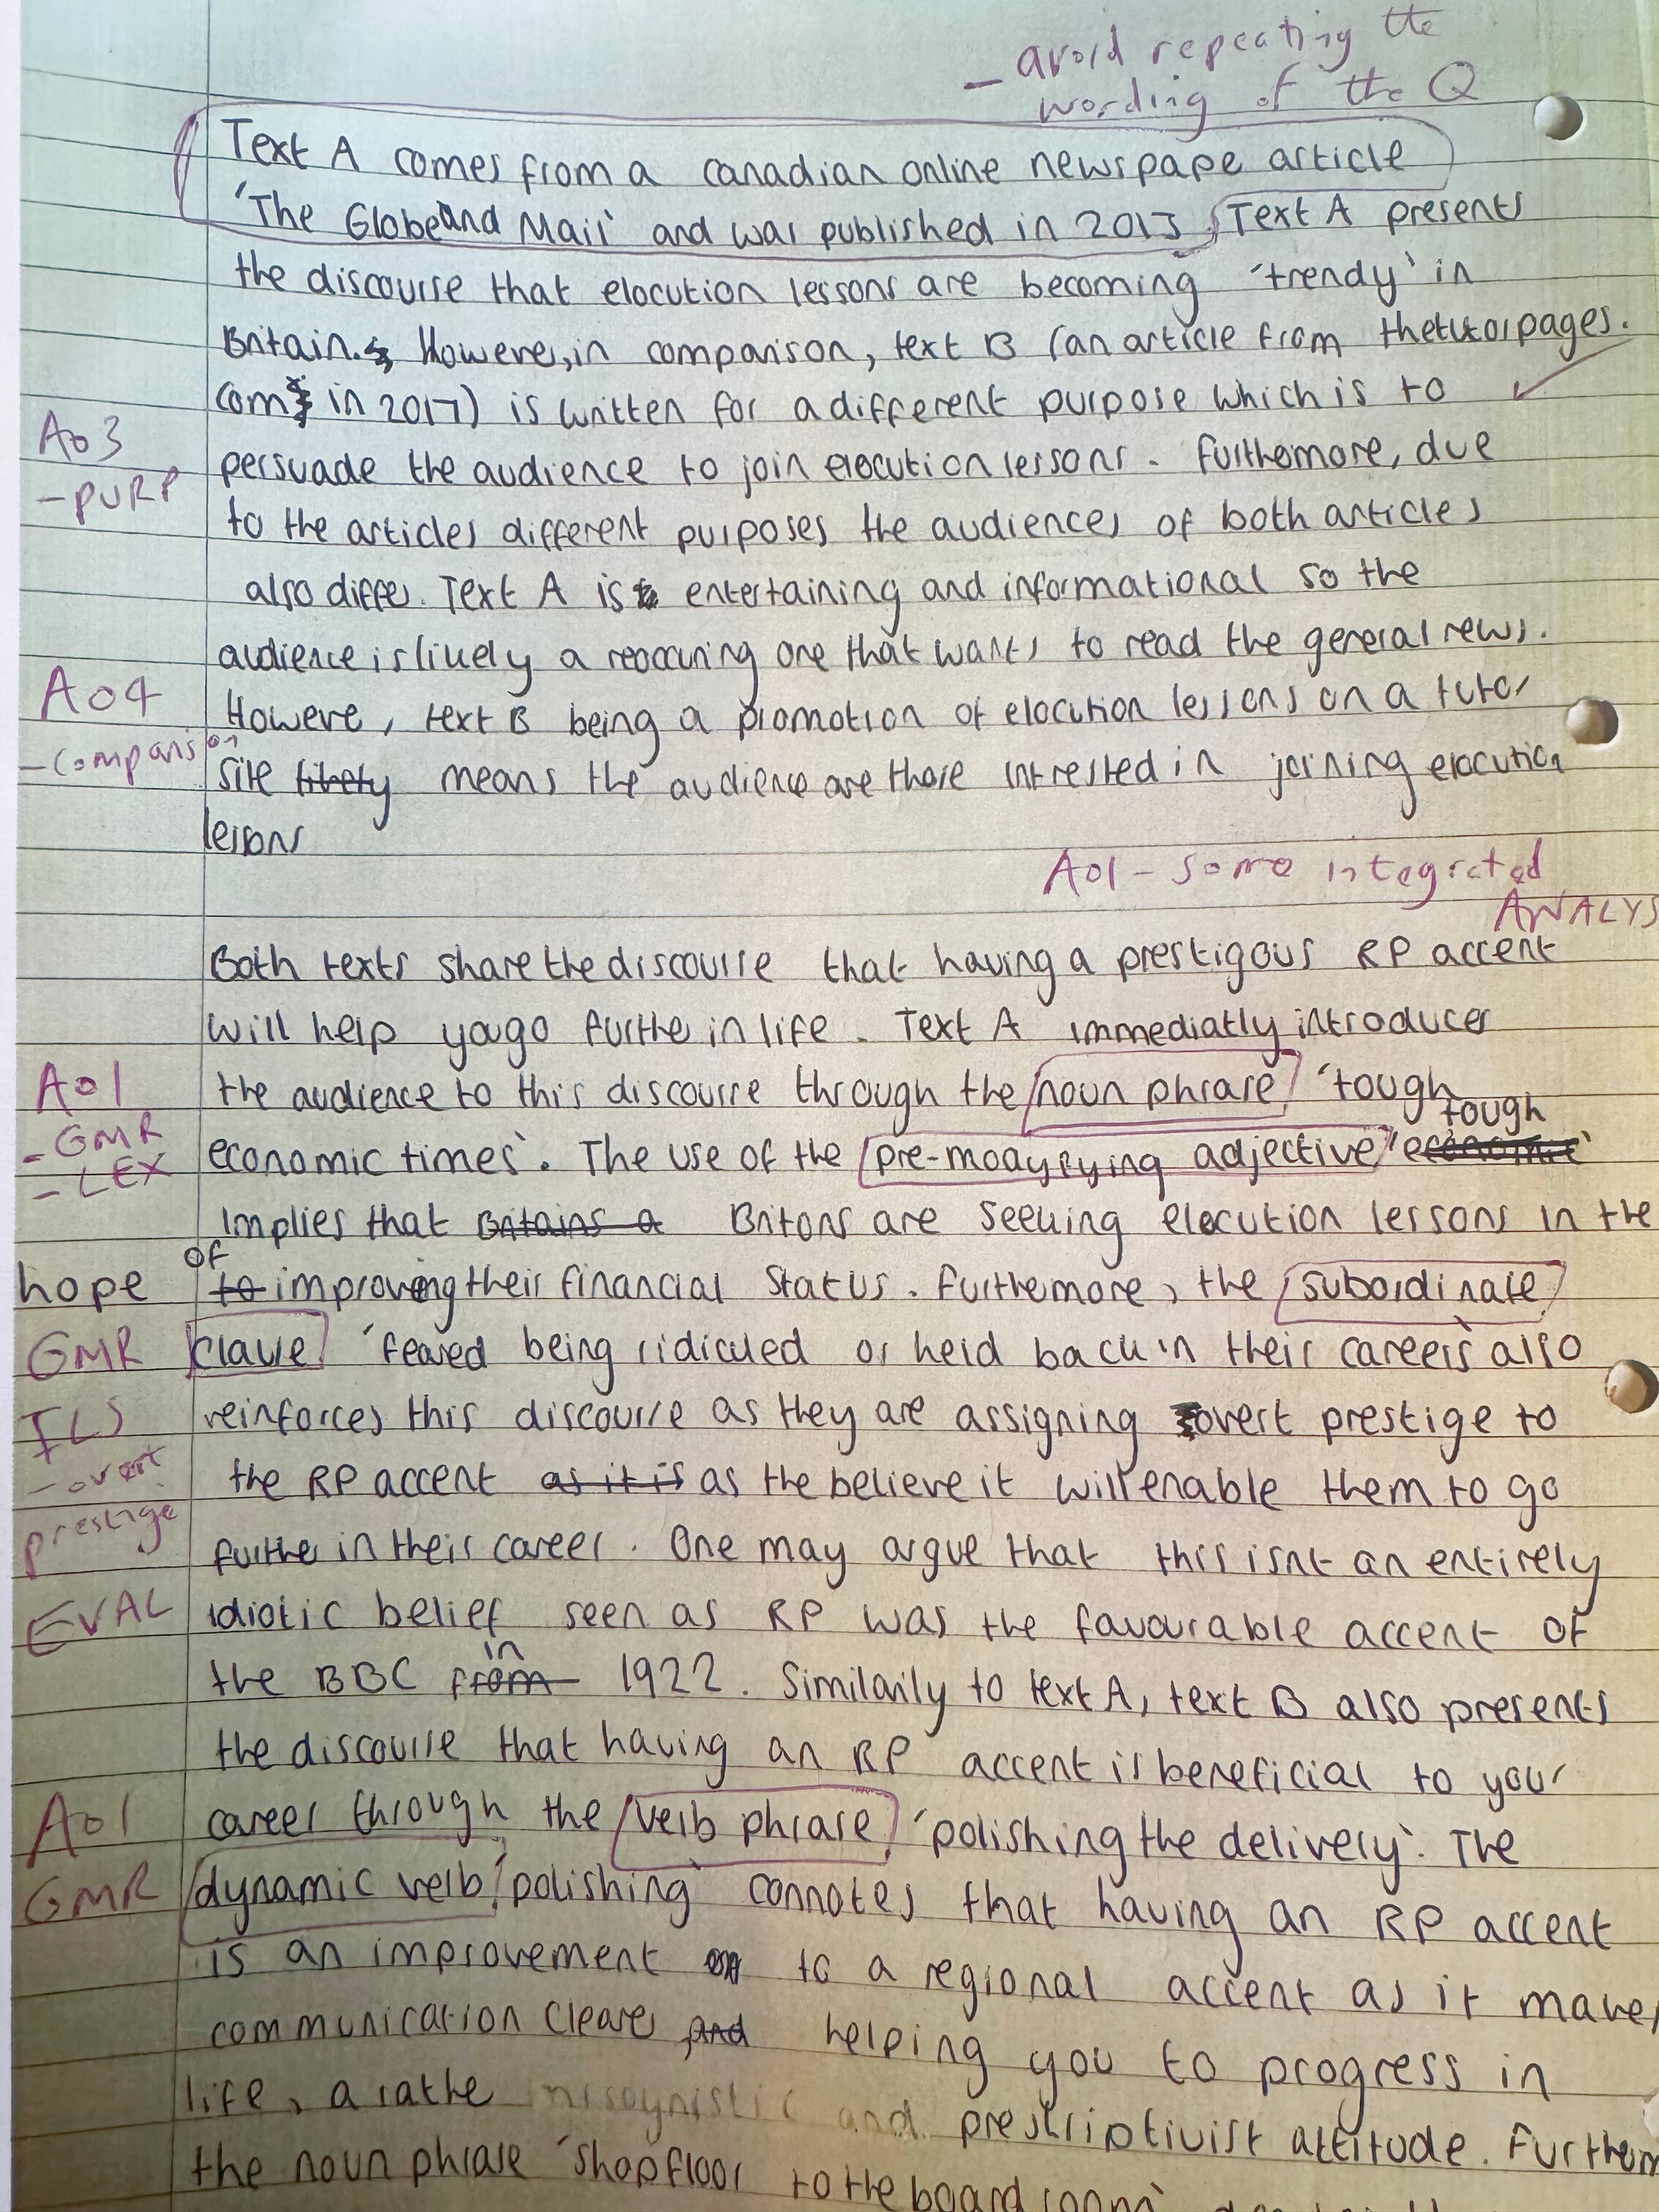 - avoid repeating the
wording of the Q
Text A comes from a canadian online newspape article
'The Globe and Mail' and was published in 2013. Text A presents
the discourse that elocution lessons are becoming 'trendy' in
Britain. However, in comparison, text B (an article from thetutorpages.
com in 2017) is written for a different purpose which is to
Ao3
persuade the audience to join elocution lessons. Furthermore, due
- PURP
to the articles different purposes the audiences of both articles
also differ. Text A is entertaining and informational so the
audience is likely a reoccuring one that wants to read the general news.
Ao4
However, text B being a promotion of elocution lessons on a tutor
- comparison
site likely means the audience are those intrested in joining elocution
lessons
Ao1 - some integrated
ANALYS
Both texts share the discourse that having a prestigous RP accent
will help you go further in life. Text A immediatly introduces
Ao1
the audience to this discourse through the noun phrase 'tough
- GMR
- LEX
economic times'. The use of the pre-modifying adjective 'economic' tough
implies that Britains a Britons are seeking elocution lessons in the
hope of to improving their financial status. Furthermore, the subordinate
GMR
clause 'feared being ridiculed or held back in their careers' also
ILS
reinforces this discourse as they are assigning overt prestige to
- overt
prestige
the RP accent as it is as the believe it will enable them to go
further in their career. One may argue that this isnt an entirely
EVAL
idiotic belief seen as RP was the favourable accent of
the BBC from in 1922. Similarily to text A, text B also presents
the discourse that having an RP accent is beneficial to your
Ao1
career through the verb phrase 'polishing the delivery'. The
GMR
dynamic verb 'polishing' connotes that having an RP accent
is an improvement to a regional accent as it makes
communication clearer, and helping you to progress in
life, a rather misogynistic and prescriptivist attitude. Furtherm
the noun phrase 'shopfloor to the board room'